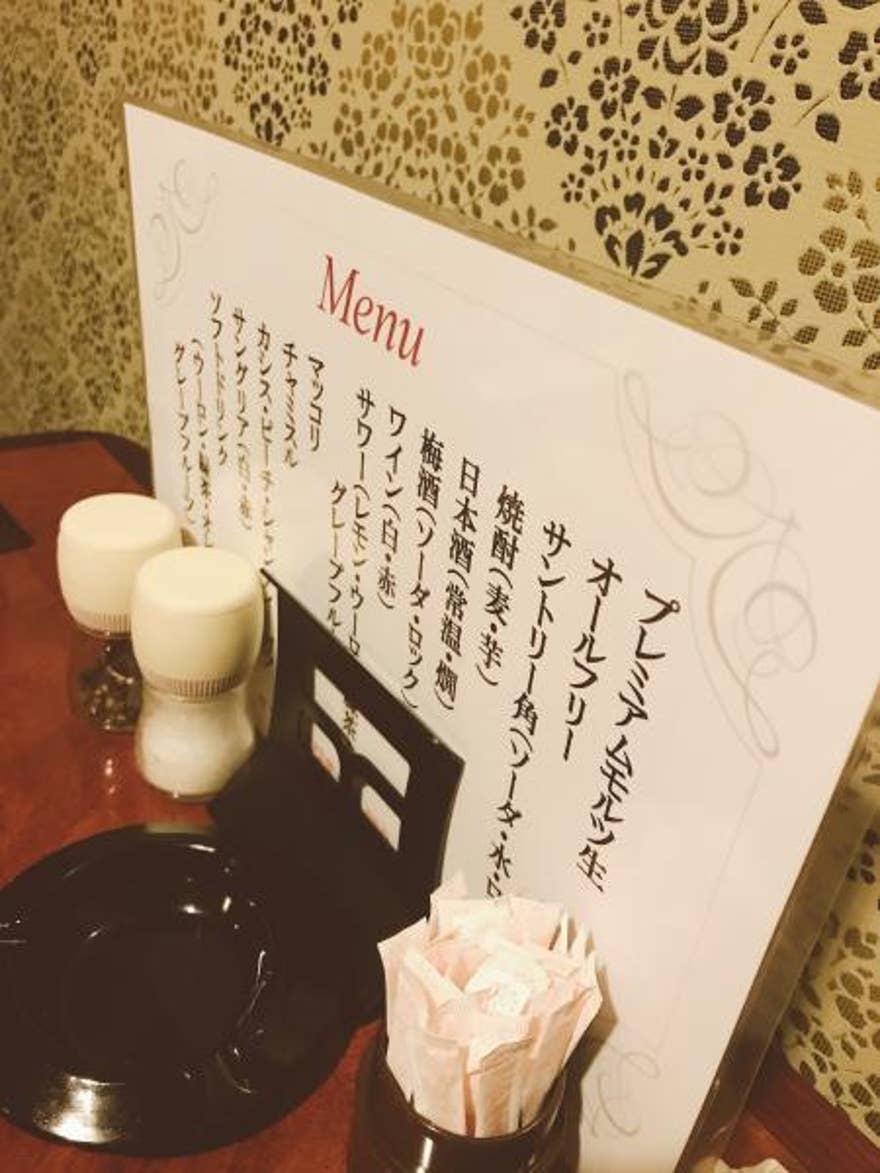 Menu
プレミアムモルツ生
オールフリー
サントリー角(ソーダ・水・ロ
焼酎(麦・芋)
日本酒(常温・燗)
梅酒(ソーダ・ロック)
ワイン(白・赤)
サワー(レモン・ウーロ
グレープフル
マッコリ
チャミスル
カシス・ピーチ・
サングリア(白・赤)
ソフトドリンク
(ウーロン・緑茶・
グレープフルーツ)
茶